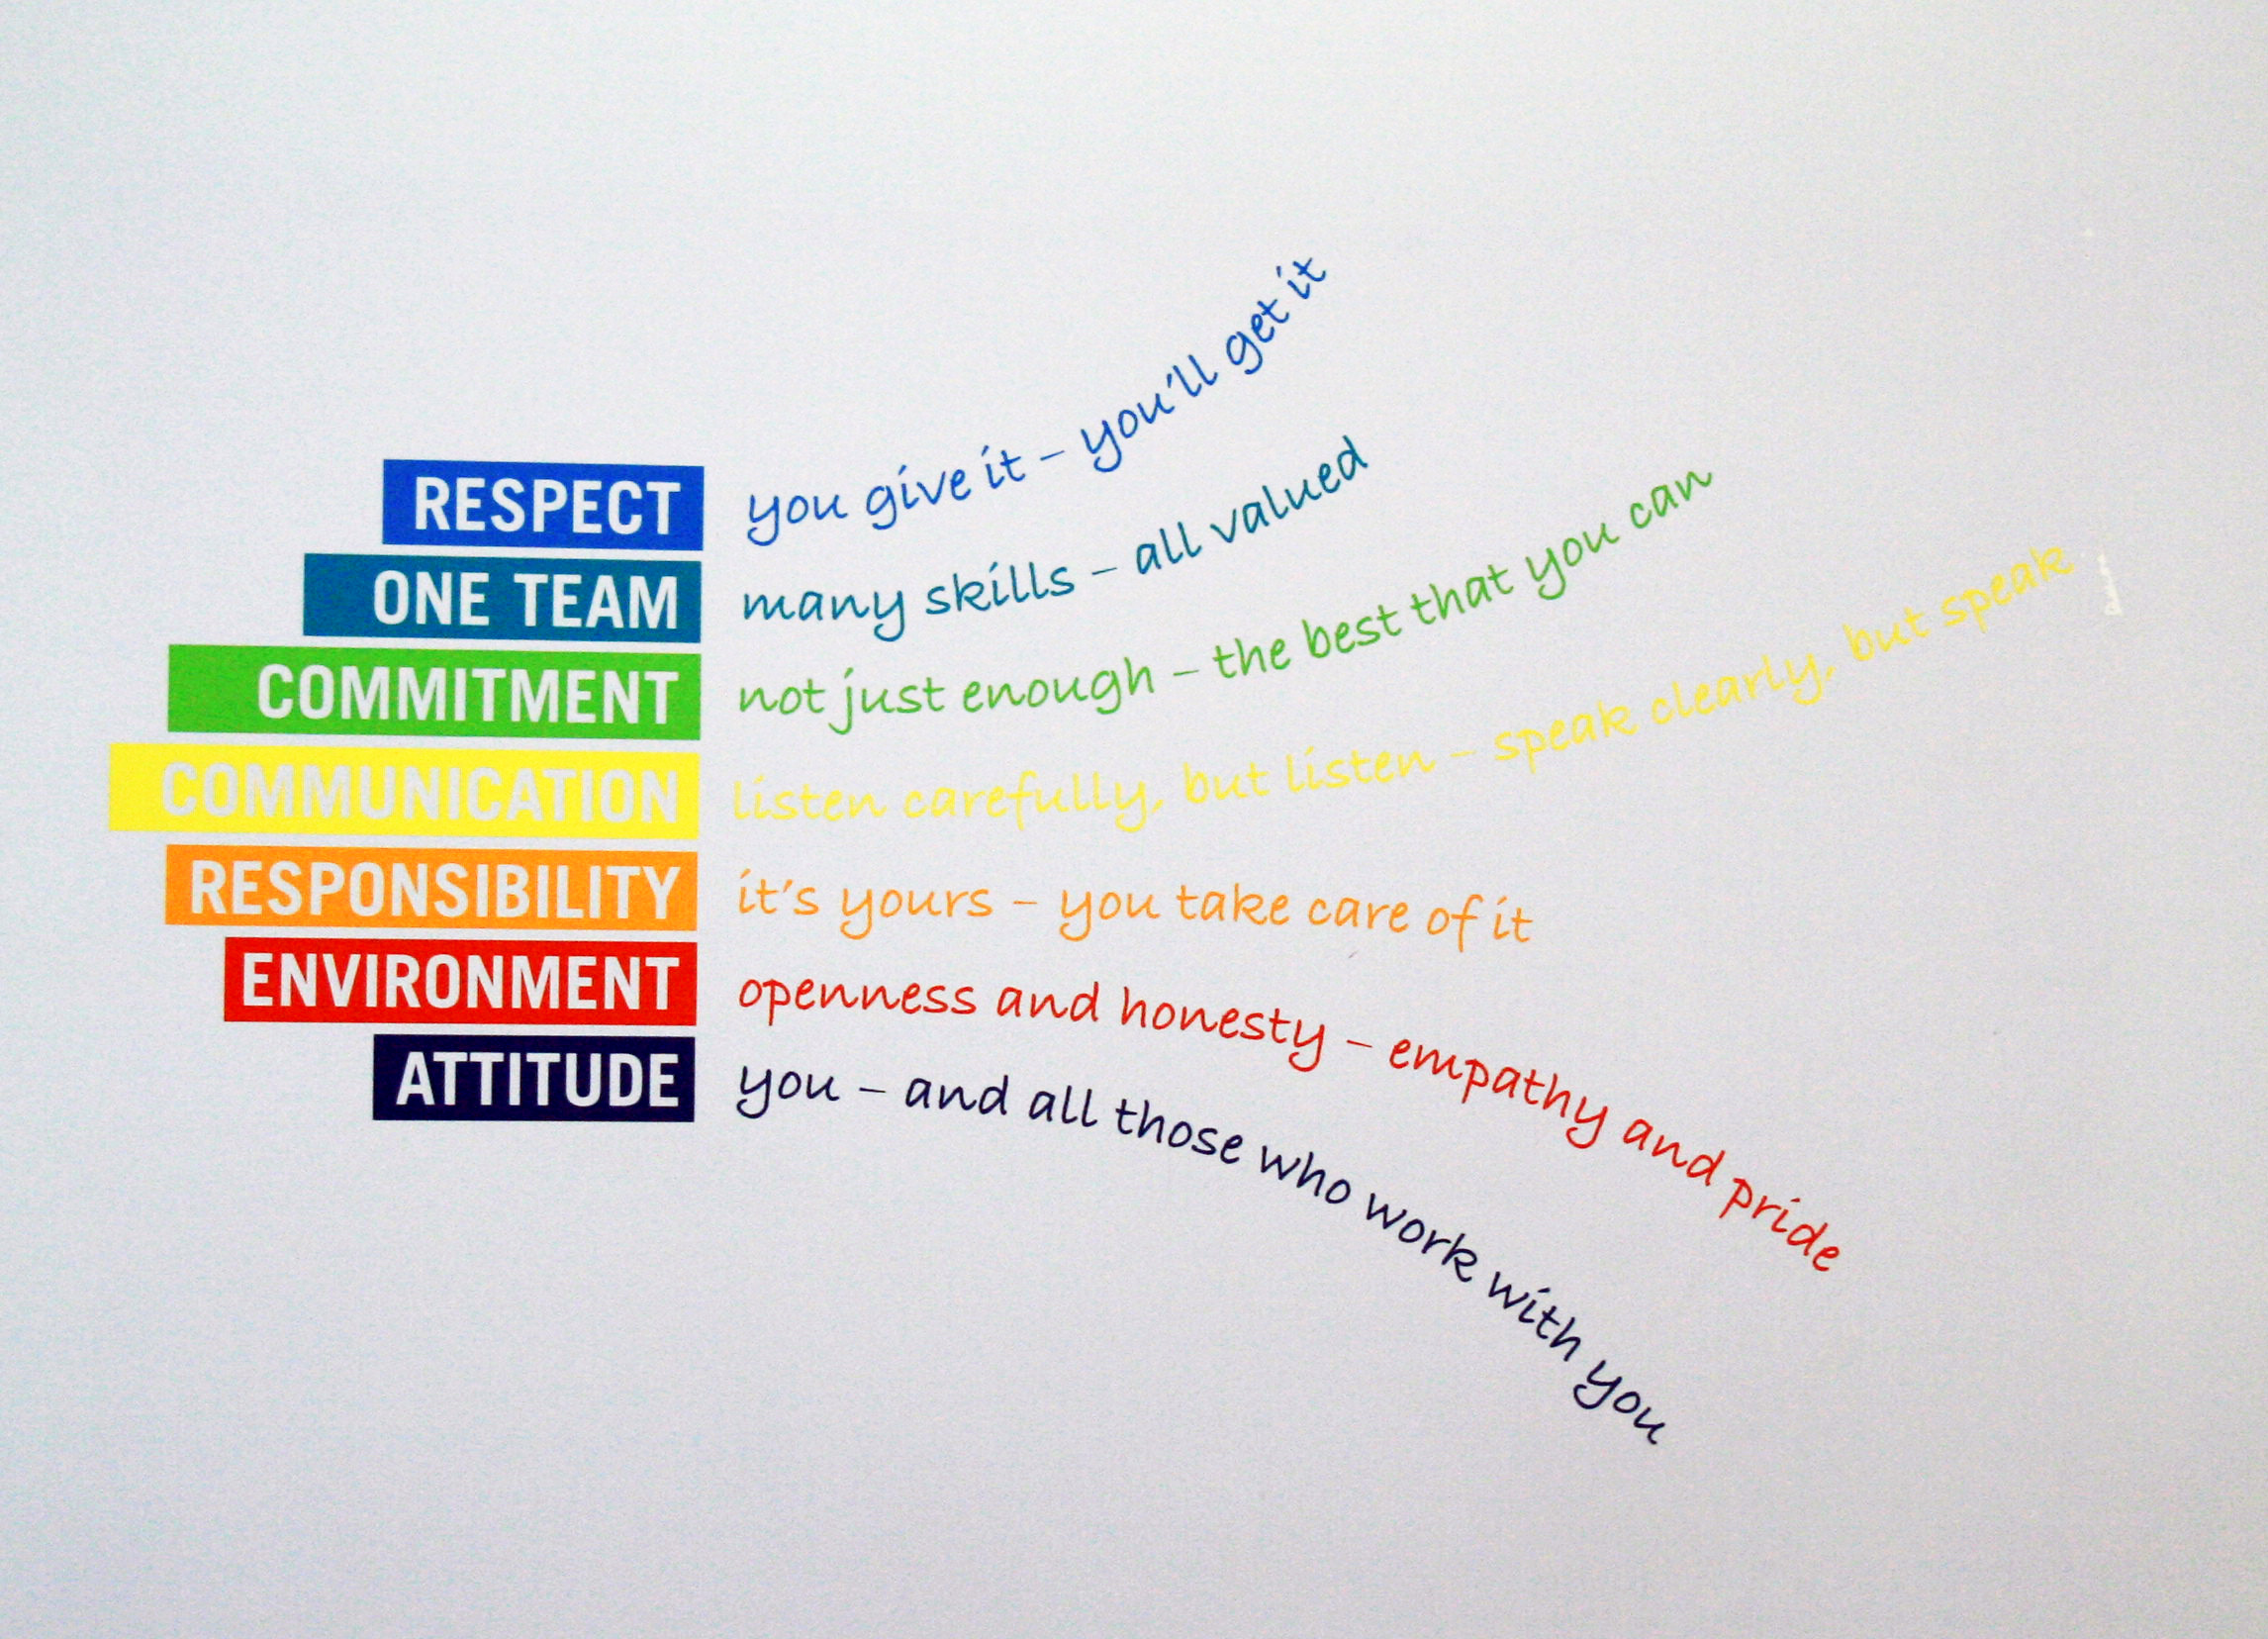 RESPECT you give it – you'll get it
ONE TEAM many skills – all valued
COMMITMENT not just enough – the best that you can
COMMUNICATION listen carefully, but listen – speak clearly, but speak
RESPONSIBILITY it's yours – you take care of it
ENVIRONMENT openness and honesty – empathy and pride
ATTITUDE you – and all those who work with you